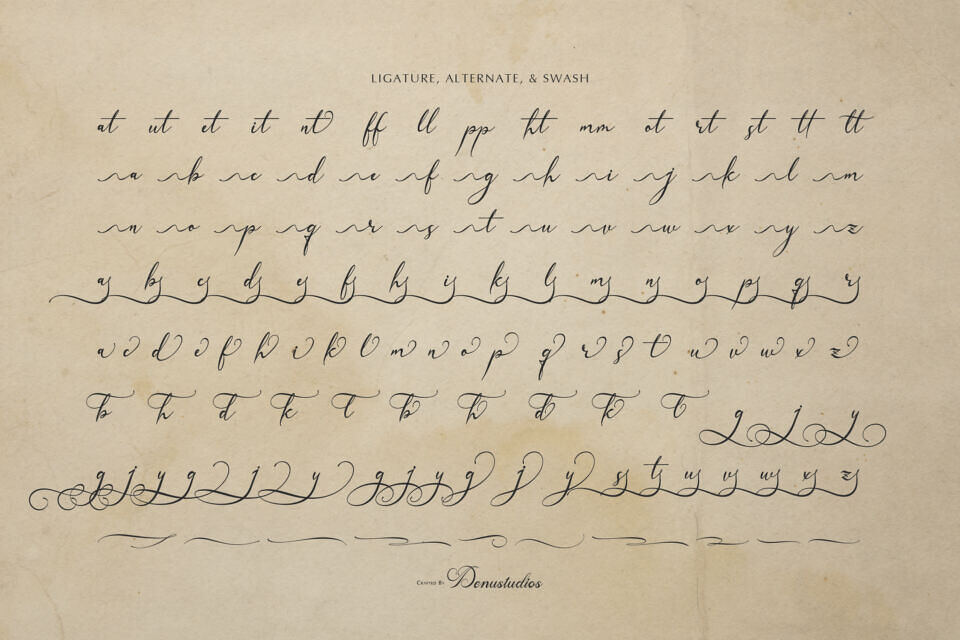 LIGATURE, ALTERNATE, & SWASH
at ut et it nt ff ll pp ht mm ot rt st tt tt
a b c d e f g h i j k l m
n o p q r s t u v w x y z
a b c d e f h i k l m n o p q r
a c d e f h i k l m n o p q r s t u v w x z
b h d k t b h d k t g j y
g j y g j y g j y g j y s t u v w x z
CRAFTED BY Denustudios